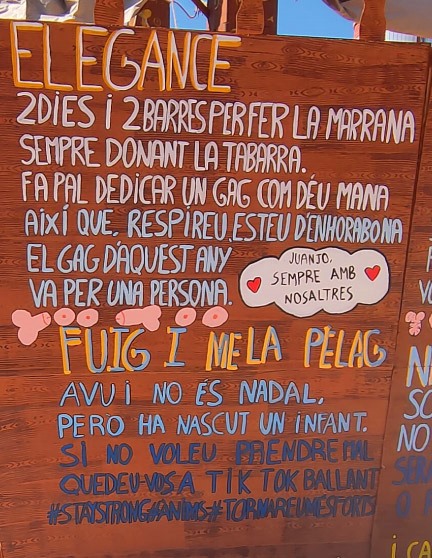 ELEGANCE
2 DIES I 2 BARRES PER FER LA MARRANA
SEMPRE DONANT LA TABARRA.
FA PAL DEDICAR UN GAG COM DÉU MANA
AIXÍ QUE, RESPIREU, ESTEU D'ENHORABONA
EL GAG D'AQUEST ANY
VA PER UNA PERSONA.
JUANJO,
SEMPRE AMB
NOSALTRES
FUIG I ME LA PELAG
AVUI NO ÉS NADAL,
PERO HA NASCUT UN INFANT.
SI NO VOLEU PRENDRE MAL
QUEDEU-VOS A TIK TOK BALLANT
#STAYSTRONG #ANIMS #TORNAREUMESFORTS